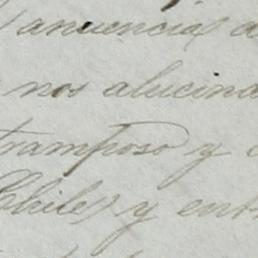 anuencia
nos alucina
tramposo y
Chile, y ent